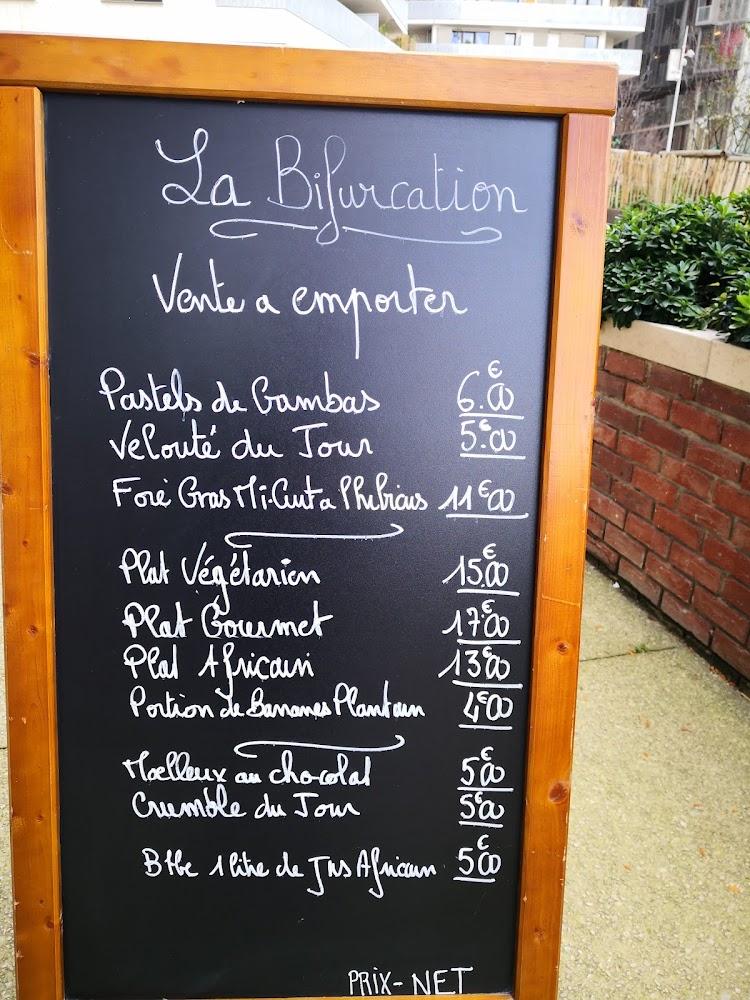 La Bifurcation
Vente a emporter
Pastels de Gambas 6.€00
Velouté du Jour 5.€00
Foie Gras Mi-Cuit a 11€00
Plat Végétarien 15.€00
Plat Gourmet 17.€00
Plat Africain 13€00
Portion de Bananes Plantain 4€00
Moelleux au chocolat 5€00
Crumble du Jour 5€00
Btle 1 litre de Jus Africain 5€00
PRIX-NET